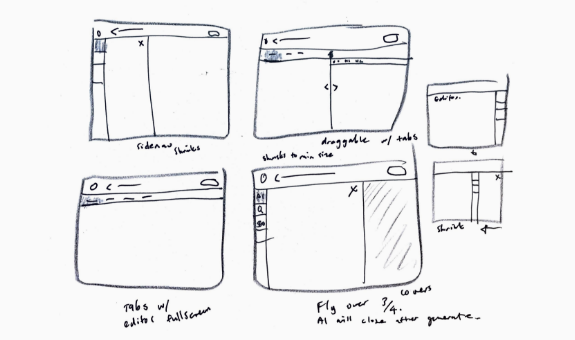 x
sidenav shrinks
< >
draggable w/ tabs
shrinks to min size
Editor.
x
shrink
Tabs w/
editor fullscreen
x
Fly over 3/4. covers
AI will close after generate